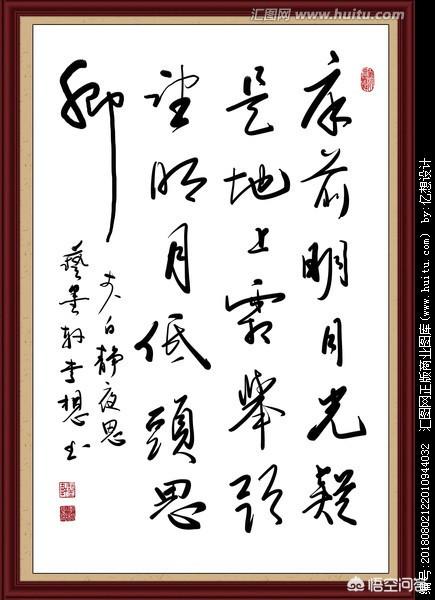 汇图网 www.huitu.com
床前明月光疑
是地上霜舉頭
望明月低頭思
鄉
李白靜夜思
藝墨軒李想书
编号:20180802122010944032 汇图网正版商业图库(www.huitu.com) by:亿想设计
悟空问答